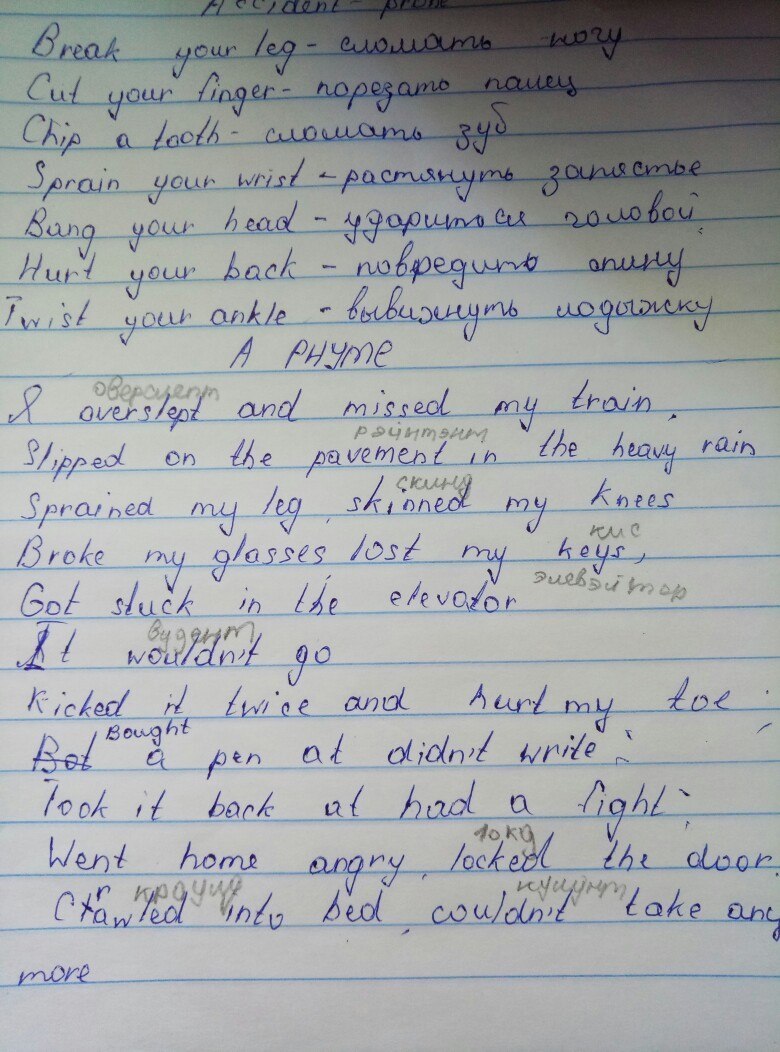 Accident - prone
Break your leg - сломать ногу
Cut your finger - порезать палец
Chip a tooth - сломать зуб
Sprain your wrist - растянуть запястье
Bang your head - удариться головой
Hurt your back - повредить спину
Twist your ankle - вывихнуть лодыжку
A RHYME
оверслепт
I overslept and missed my train.
Slipped on the pavement in the heavy rain
скинд
Sprained my leg, skinned my knees
кис
Broke my glasses lost my keys,
элевэйтор
Got stuck in the elevator
вудант
It wouldn't go
Kicked it twice and hurt my toe;
Bought
Bot a pen at didn't write;
Took it back at had a fight;
локд
Went home angry, locked the door.
краулд
Crawled into bed, couldn't take any
more